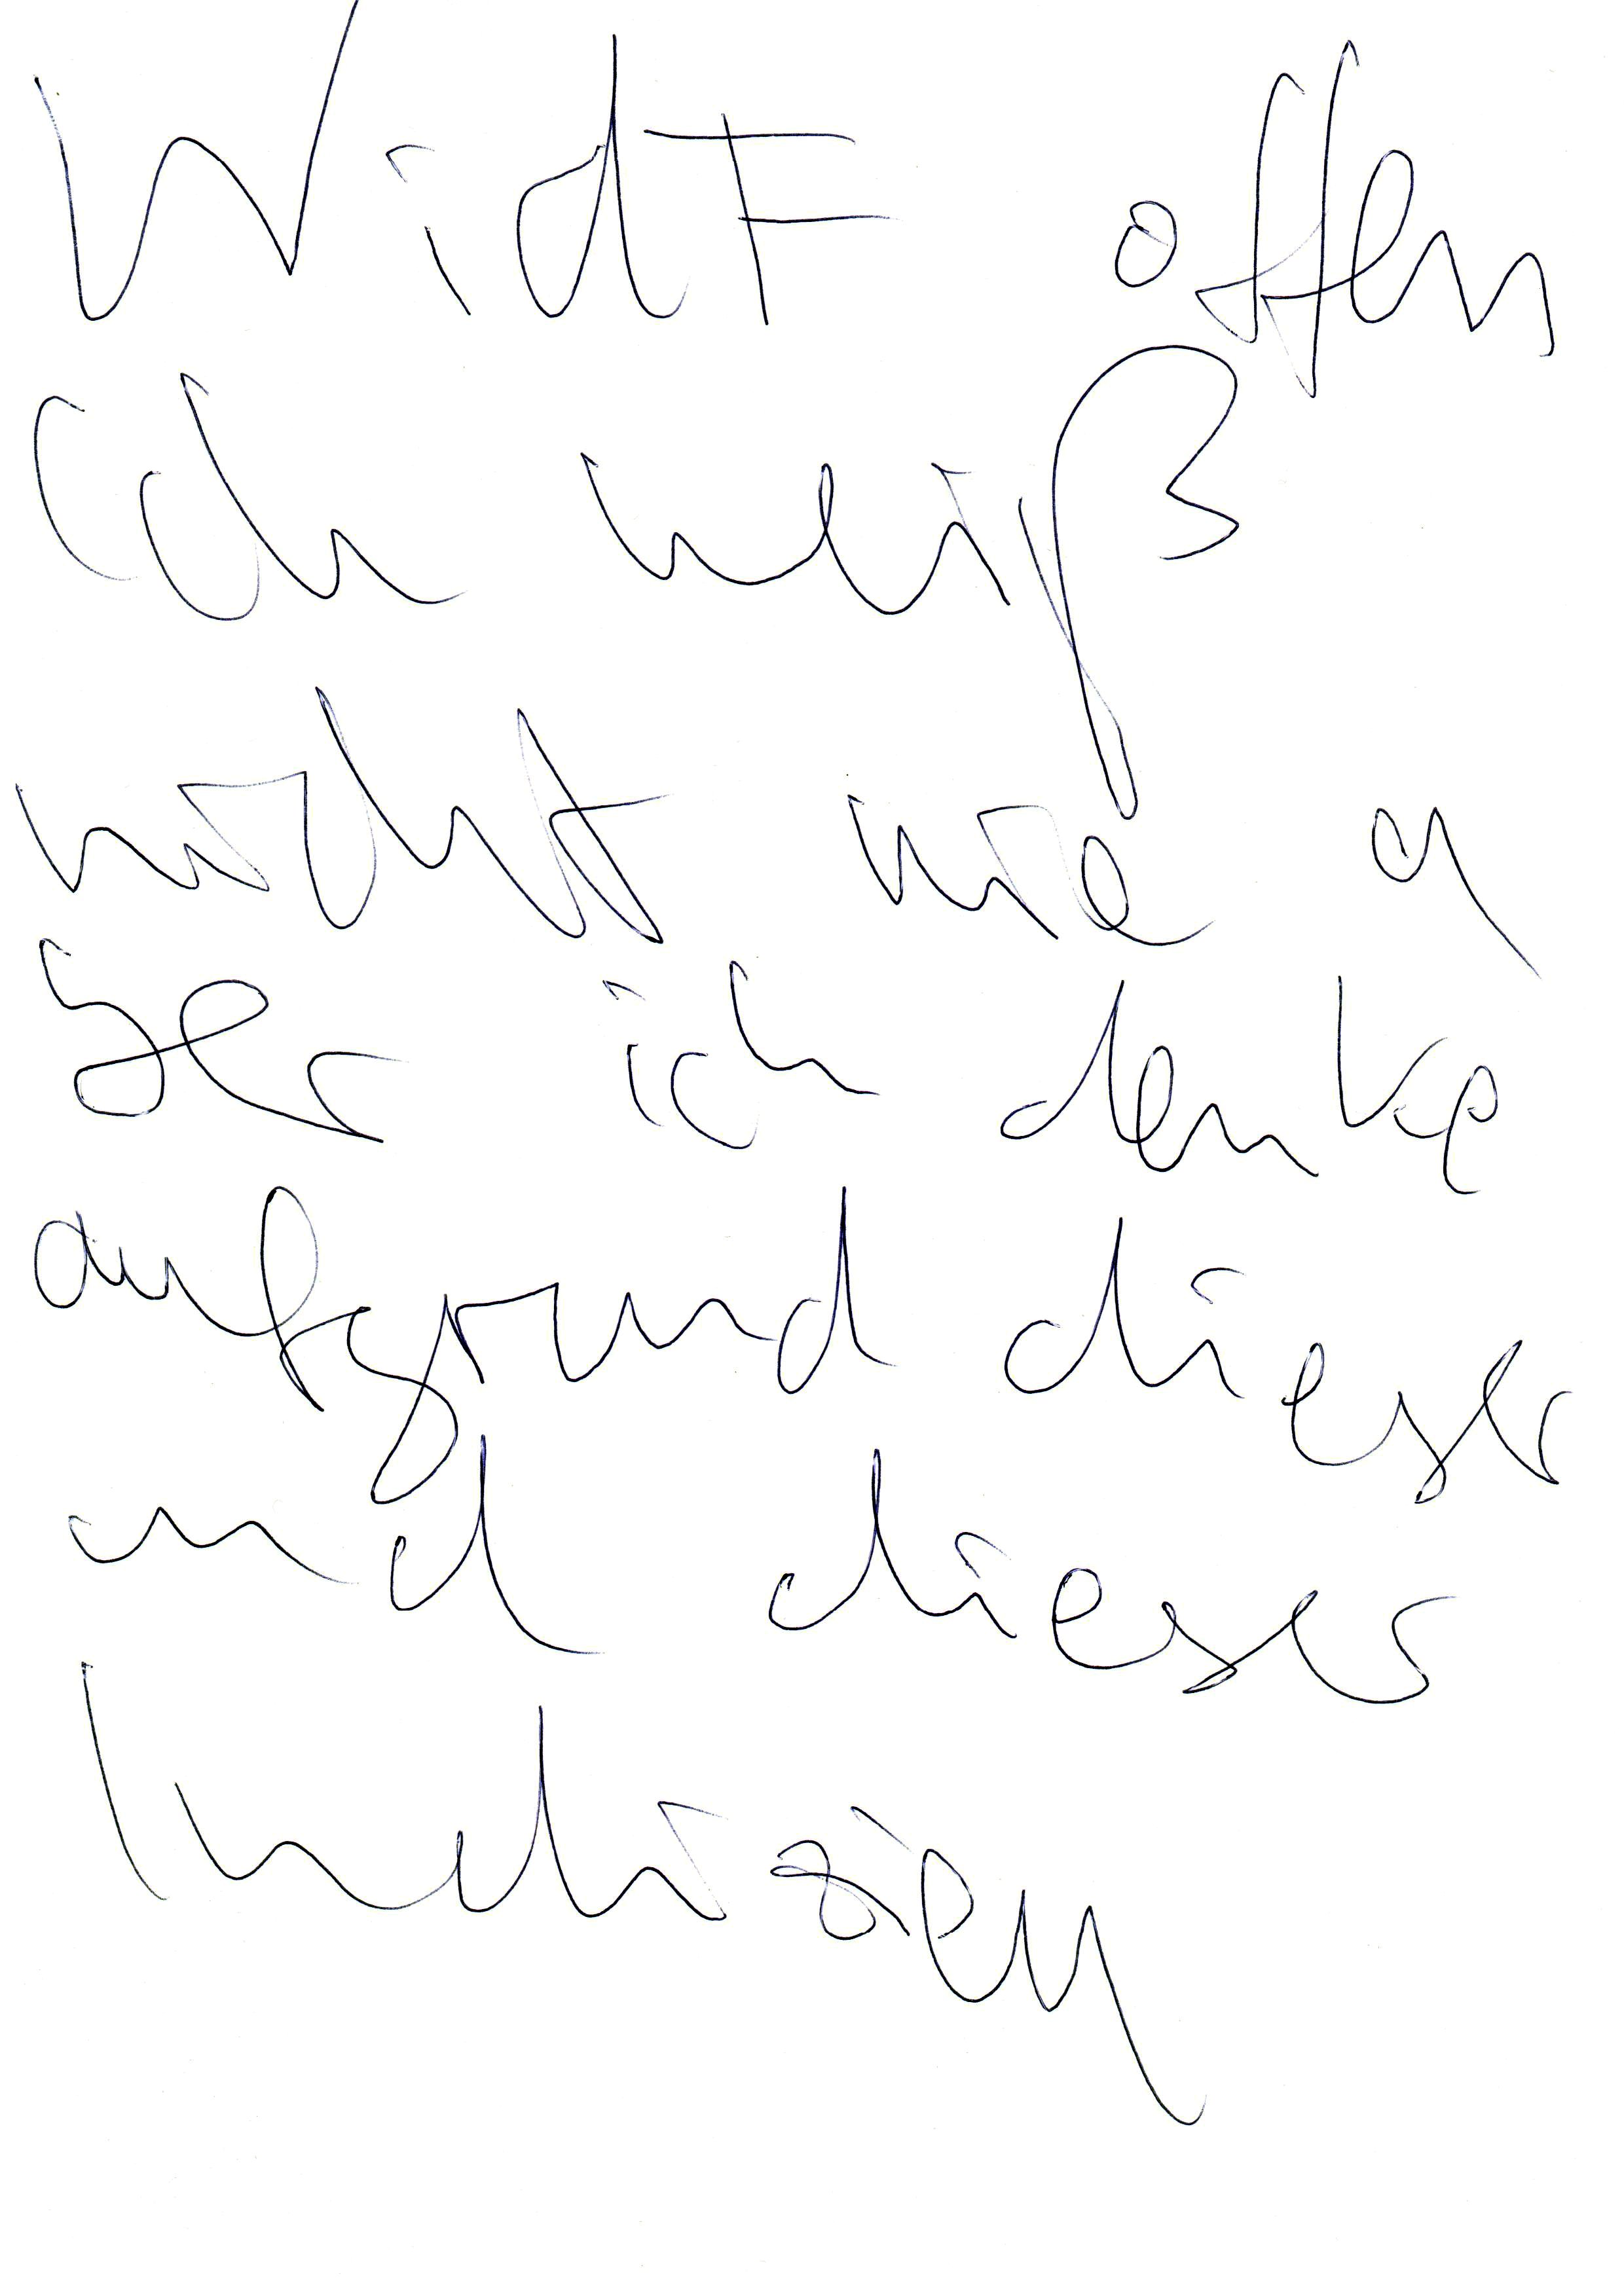 WidF offen
Ich weiß
nicht wie a
ber ich denke
aufgrund dieser
und dieser
Indizien